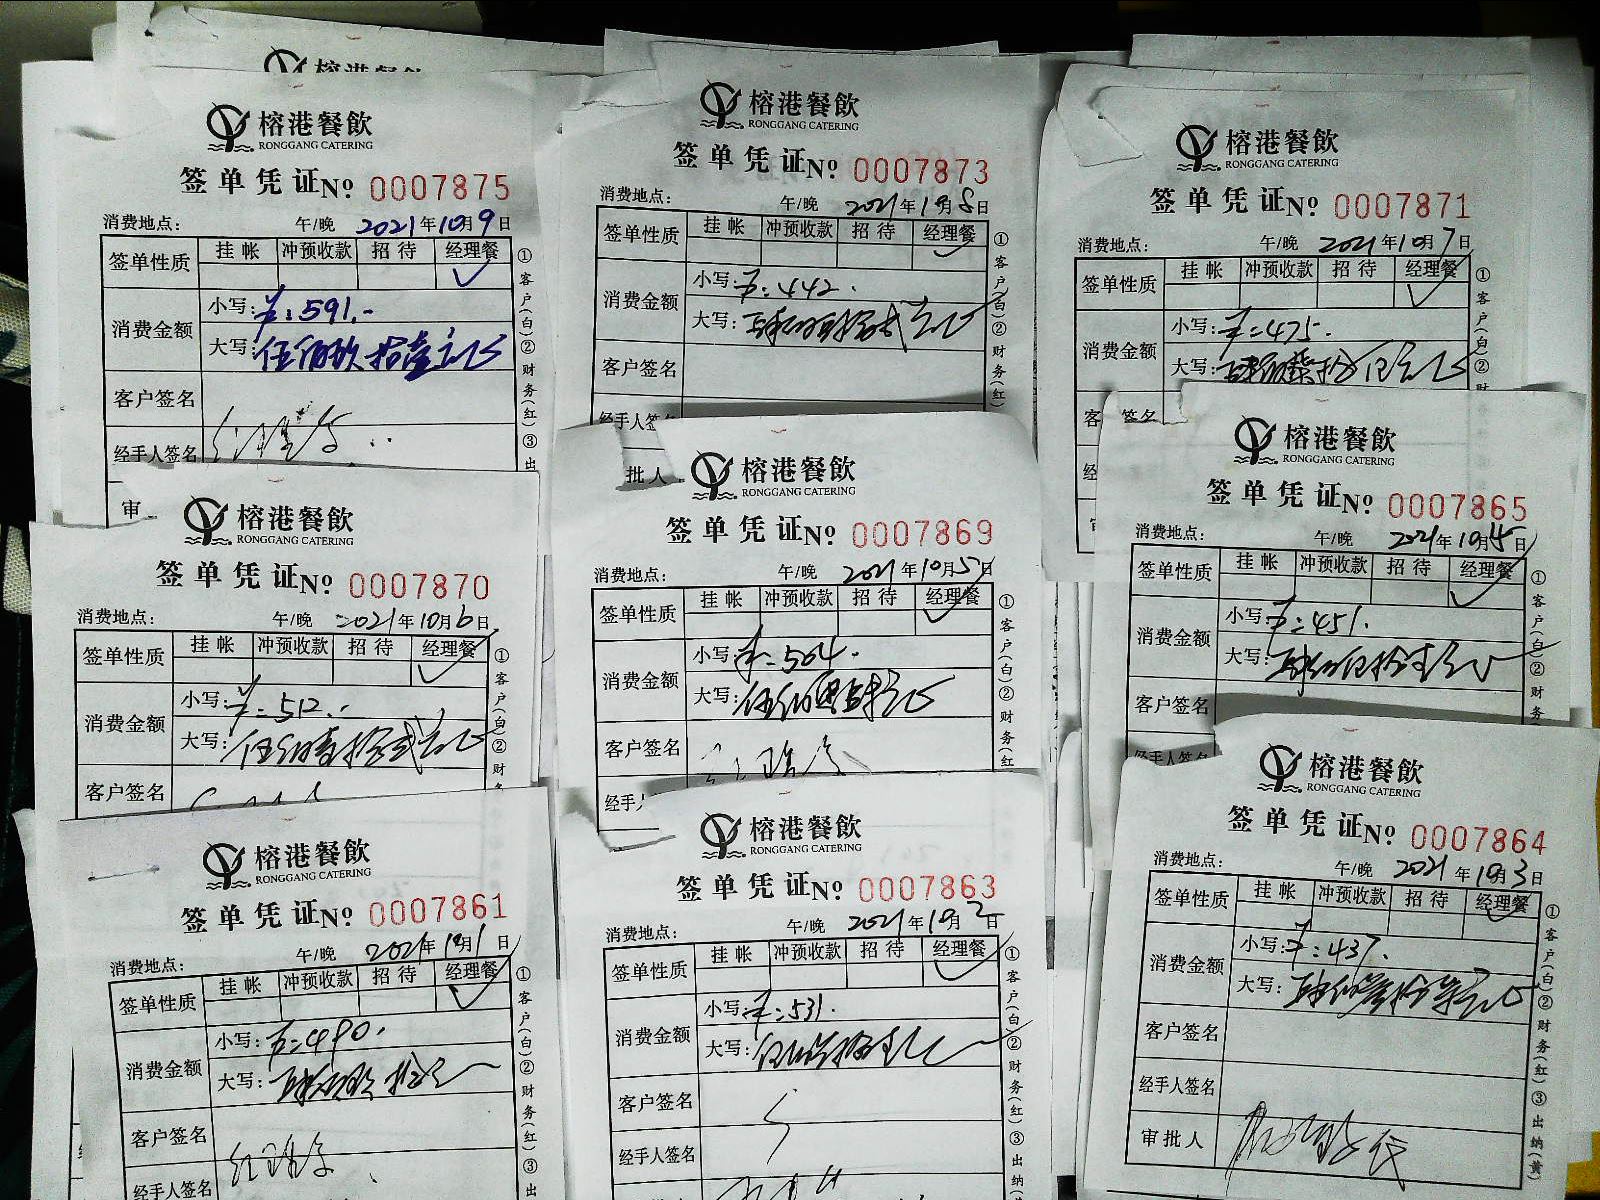 榕港餐飲
RONGGANG CATERING
签单凭证No 0007875
消费地点: 午/晚 2021年10月9日
签单性质 挂帐 冲预收款 招待 经理餐
消费金额 小写: ¥:591.-
大写: 伍佰玖拾壹元正
客户签名
经手人签名
①客户(白)②财务(红)③出
榕港餐飲
RONGGANG CATERING
签单凭证No 0007873
消费地点: 午/晚 2021年10月8日
签单性质 挂帐 冲预收款 招待 经理餐
消费金额 小写: ¥:442.
大写: 肆佰肆拾贰元正
客户签名
经手人签
批人
①客户(白)②财务(红)
榕港餐飲
RONGGANG CATERING
签单凭证No 0007871
消费地点: 午/晚 2021年10月7日
签单性质 挂帐 冲预收款 招待 经理餐
消费金额 小写: ¥:475.
大写: 肆佰柒拾伍元正
客 签名
经
①客户(白)②财
榕港餐飲
RONGGANG CATERING
签单凭证No 0007870
消费地点: 午/晚 2021年10月6日
签单性质 挂帐 冲预收款 招待 经理餐
消费金额 小写: ¥:512.-
大写: 伍佰壹拾贰元正
客户签名
①客户(白)②财务
榕港餐飲
RONGGANG CATERING
签单凭证No 0007869
消费地点: 午/晚 2021年10月5日
签单性质 挂帐 冲预收款 招待 经理餐
消费金额 小写: ¥:504.
大写: 伍佰零肆元正
客户签名
经手
①客户(白)②财务(红
榕港餐飲
RONGGANG CATERING
签单凭证No 0007865
消费地点: 午/晚 2021年10月4日
签单性质 挂帐 冲预收款 招待 经理餐
消费金额 小写: ¥:451.
大写:
客户签名
经手人签名
①客户(白)②财务
榕港餐飲
RONGGANG CATERING
签单凭证No 0007861
消费地点: 午/晚 2021年10月1日
签单性质 挂帐 冲预收款 招待 经理餐
消费金额 小写: ¥:490.
大写: 肆佰玖拾元
客户签名
经手人签名
①客户(白)②财务(红)③出
榕港餐飲
RONGGANG CATERING
签单凭证No 0007863
消费地点: 午/晚 2021年10月2日
签单性质 挂帐 冲预收款 招待 经理餐
消费金额 小写: ¥:531.
大写:
客户签名
经手人签名
①客户(白)②财务(红)③出纳
榕港餐飲
RONGGANG CATERING
签单凭证No 0007864
消费地点: 午/晚 2021年10月3日
签单性质 挂帐 冲预收款 招待 经理餐
消费金额 小写: ¥:437.
大写: 肆佰叁拾柒元正
客户签名
经手人签名
审批人
①客户(白)②财务(红)③出纳(黄)